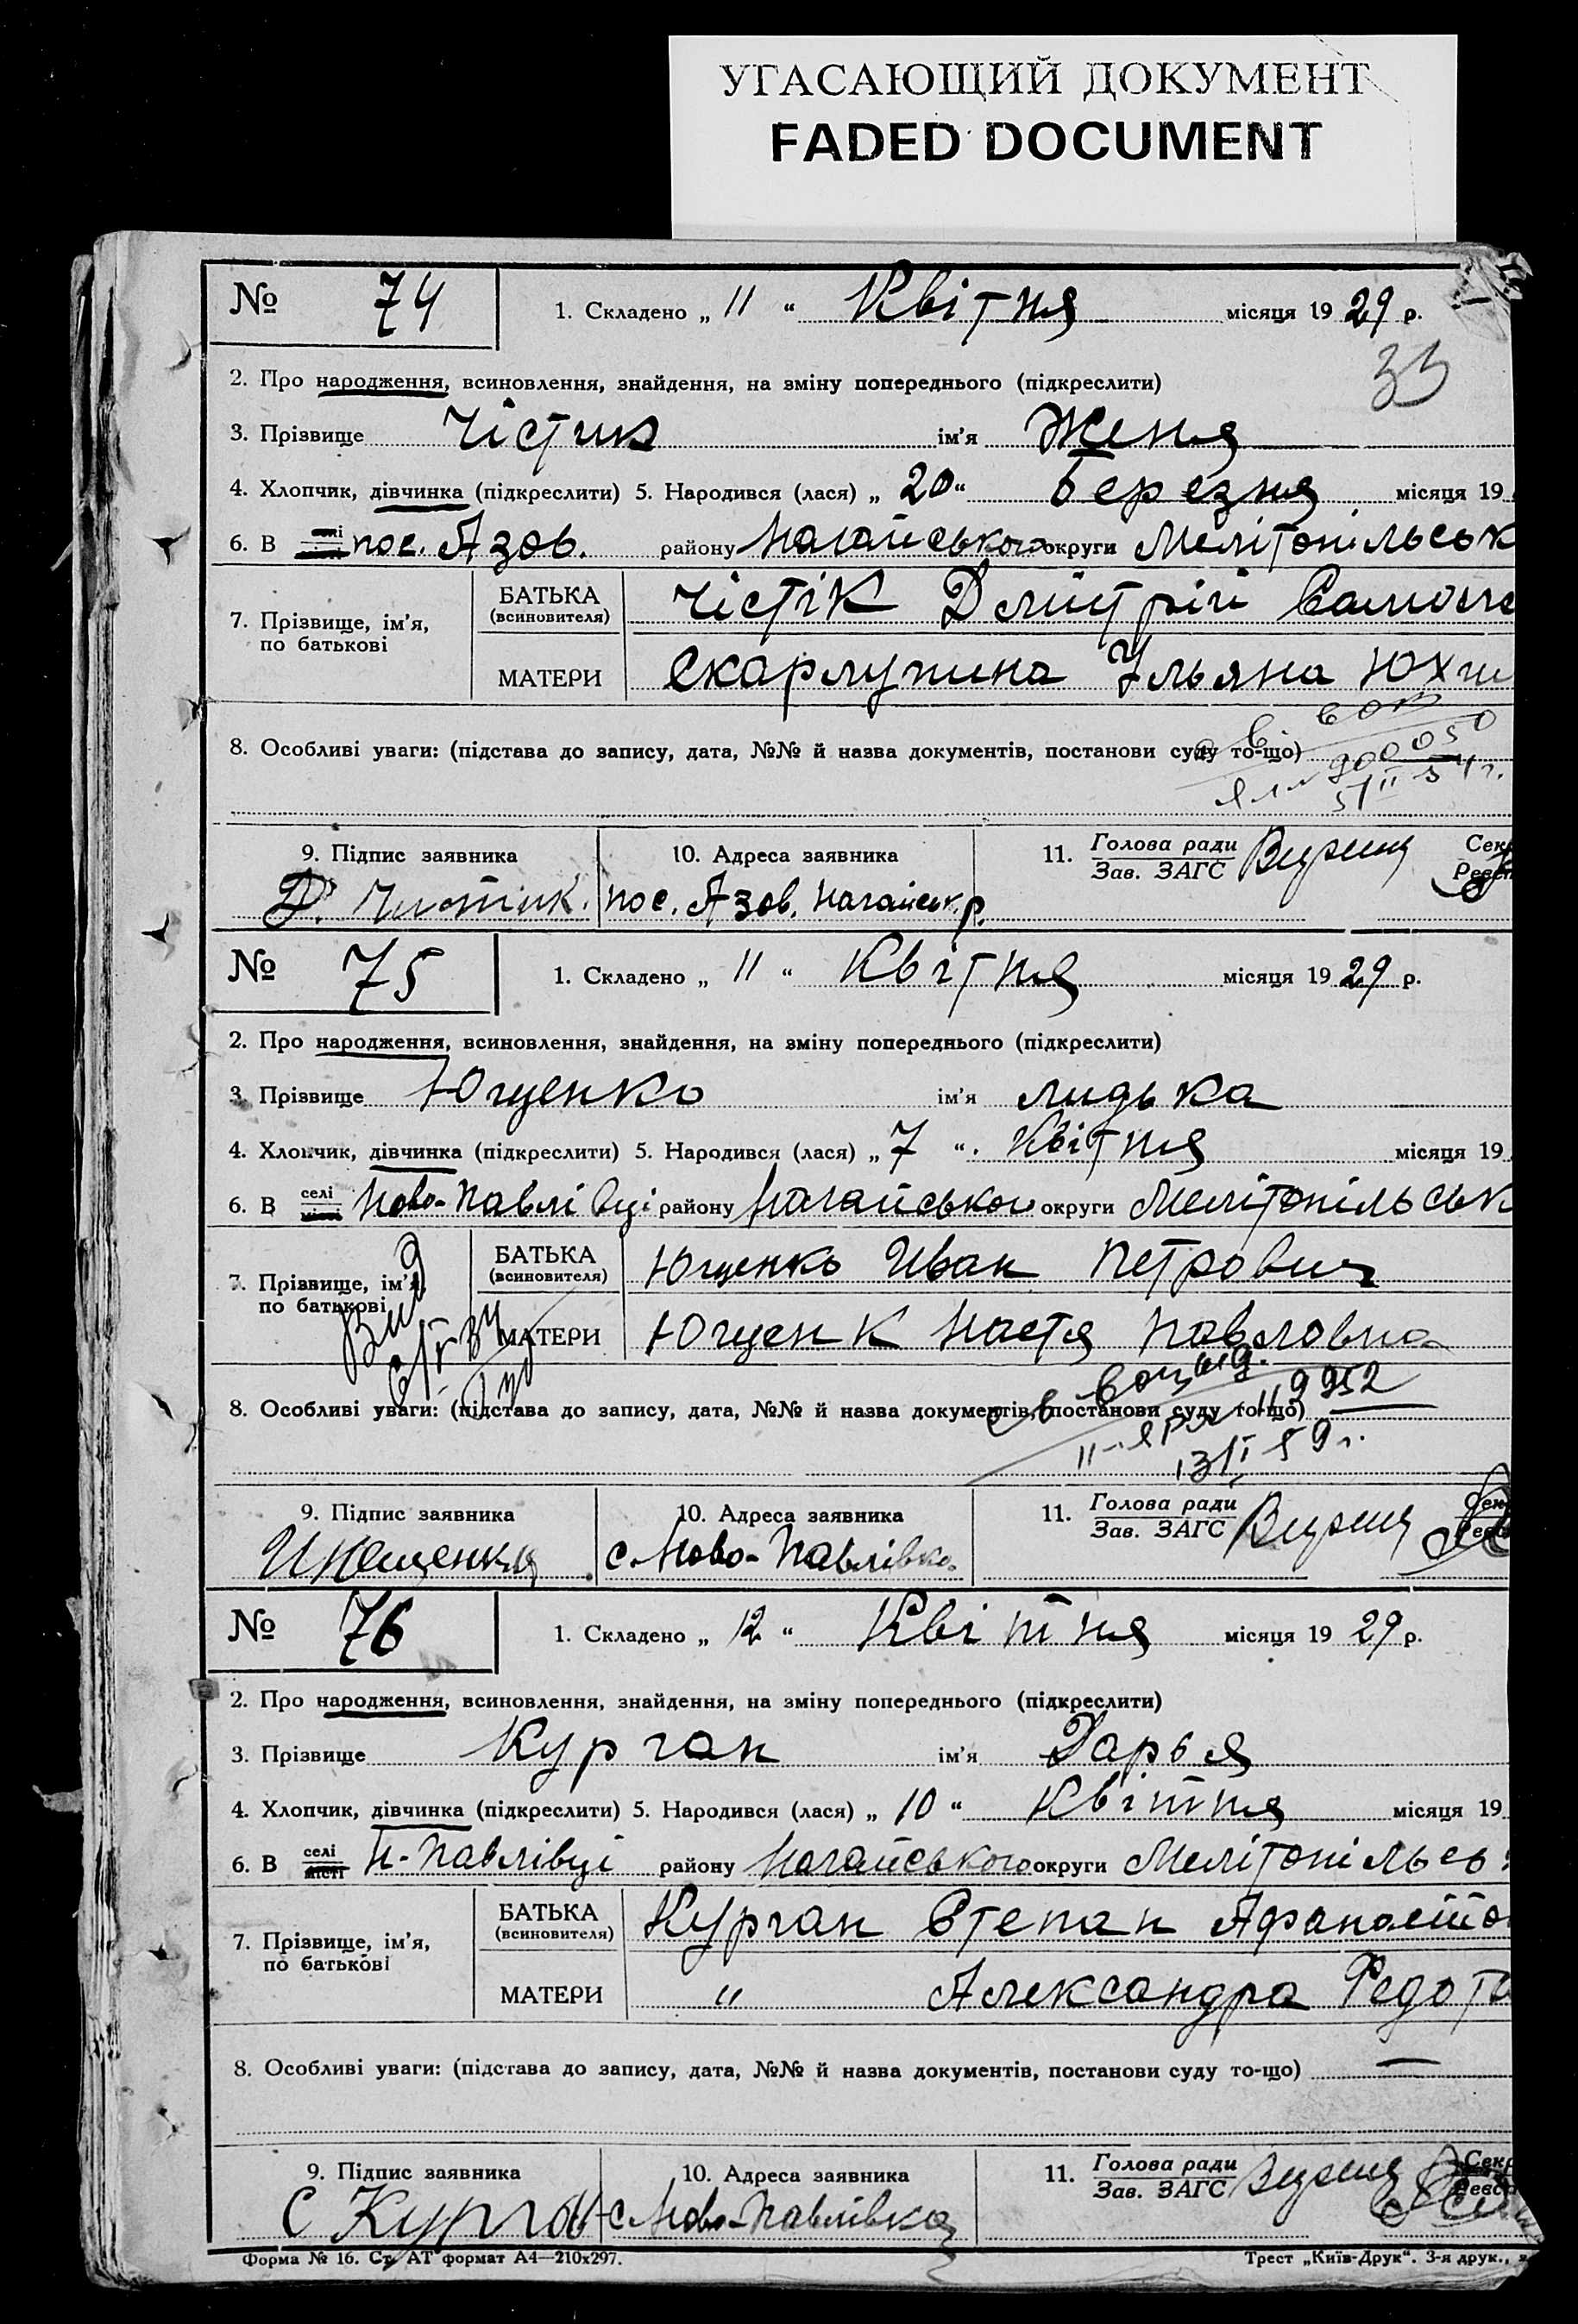 УГАСАЮЩИЙ ДОКУМЕНТ
FADED DOCUMENT
№ 74 1. Складено „ 11 “ Квітня місяця 19 29 р.
33
2. Про народження, всиновлення, знайдення, на зміну попереднього (підкреслити)
3. Прізвище Чістик ім'я Женя
4. Хлопчик, дівчинка (підкреслити) 5. Народився (лася) „ 20 “ Березня місяця 19
6. В пос. Азов. району Нагайського округи Мелітопільськ
7. Прізвище, ім'я, по батькові
БАТЬКА (всиновителя) Чістік Дмітрій
МАТЕРИ Скарлупина Ульяна Юхи
8. Особливі уваги: (підстава до запису, дата, №№ й назва документів, постанови суду то-що)
9. Підпис заявника 10. Адреса заявника 11. Голова ради Сек
Зав. ЗАГС
Д. Чистик. пос. Азов. Нагайськ р.
№ 75 1. Складено „ 11 “ Квітня місяця 19 29 р.
2. Про народження, всиновлення, знайдення, на зміну попереднього (підкреслити)
3. Прізвище Ющенко ім'я Лидька
4. Хлопчик, дівчинка (підкреслити) 5. Народився (лася) „ 7 “ Квітня місяця 19
6. В селі місті Ново-Павлівці району Нагайського округи Мелітопільськ
7. Прізвище, ім'я, по батькові
БАТЬКА (всиновителя) Ющенко Иван Петрович
МАТЕРИ Ющенк Настя Павловна
8. Особливі уваги: (підстава до запису, дата, №№ й назва документів, постанови суду то-що)
9. Підпис заявника 10. Адреса заявника 11. Голова ради
Зав. ЗАГС
с Ново-Павлівка
№ 76 1. Складено „ 12 “ Квітня місяця 19 29 р.
2. Про народження, всиновлення, знайдення, на зміну попереднього (підкреслити)
3. Прізвище Курган ім'я Дарья
4. Хлопчик, дівчинка (підкреслити) 5. Народився (лася) „ 10 “ Квітня місяця 19
6. В селі місті Н-Павлівці району Нагайського округи Мелітопільсь
7. Прізвище, ім'я, по батькові
БАТЬКА (всиновителя) Курган Степан
МАТЕРИ " Александра Федот
8. Особливі уваги: (підстава до запису, дата, №№ й назва документів, постанови суду то-що) —
9. Підпис заявника 10. Адреса заявника 11. Голова ради Секр
Зав. ЗАГС
С Курган с Ново-Павлівка
Форма № 16. Ст. АТ формат А4—210x297. Трест „Київ-Друк“. 3-я друк.,